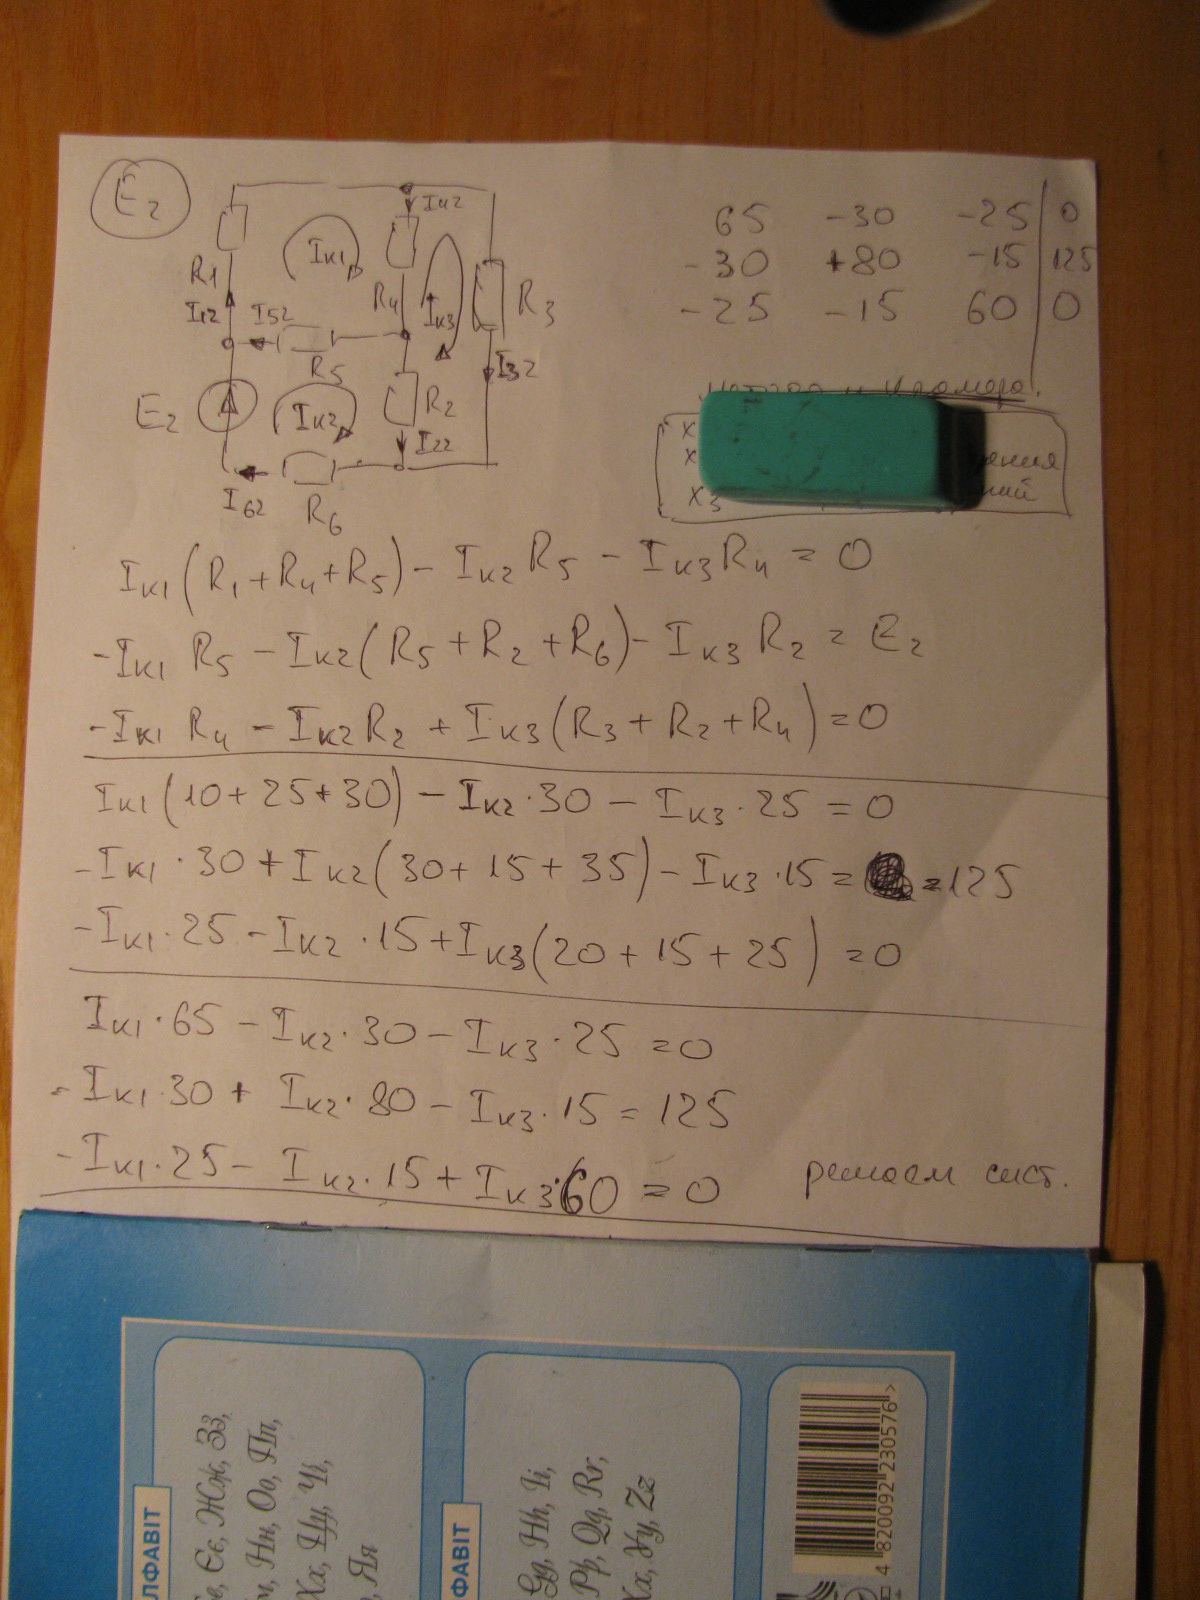 E2
Iк1
I42
R1
I12
I52
R4
Iк3
R3
R5
I32
E2
Iк2
R2
I22
I62
R6
65 -30 -25 | 0
-30 +80 -15 | 125
-25 -15 60 | 0
Крамера.
x
x
x3
Iк1(R1+R4+R5) - Iк2 R5 - Iк3 R4 = 0
-Iк1 R5 - Iк2(R5+R2+R6) - Iк3 R2 = E2
-Iк1 R4 - Iк2 R2 + Iк3(R3+R2+R4) = 0
Iк1(10+25+30) - Iк2·30 - Iк3·25 = 0
-Iк1·30 + Iк2(30+15+35) - Iк3·15 = =125
-Iк1·25 - Iк2·15 + Iк3(20+15+25) = 0
Iк1·65 - Iк2·30 - Iк3·25 = 0
-Iк1·30 + Iк2·80 - Iк3·15 = 125
-Iк1·25 - Iк2·15 + Iк3·60 = 0
решаем сист.
ЛФАВІТ
Єє, Жж, Зз,
Нн, Оо, Пп,
Ха, Цц, Чч,
Яя
ФАВІТ
Gg, Hh, Ii,
Pp, Qq, Rr,
Yy, Zz
4 820092 230576 >